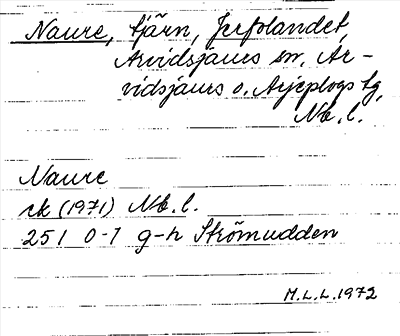 Naure, tjärn, Jerfolandet,
Arvidsjaurs sn, Ar-
vidsjaurs o. Arjeplogs tg,
Nb. l.
Naure
ek (1971) Nb. l.
25 I 0-1 g-h Strömudden
M.L.L. 1972